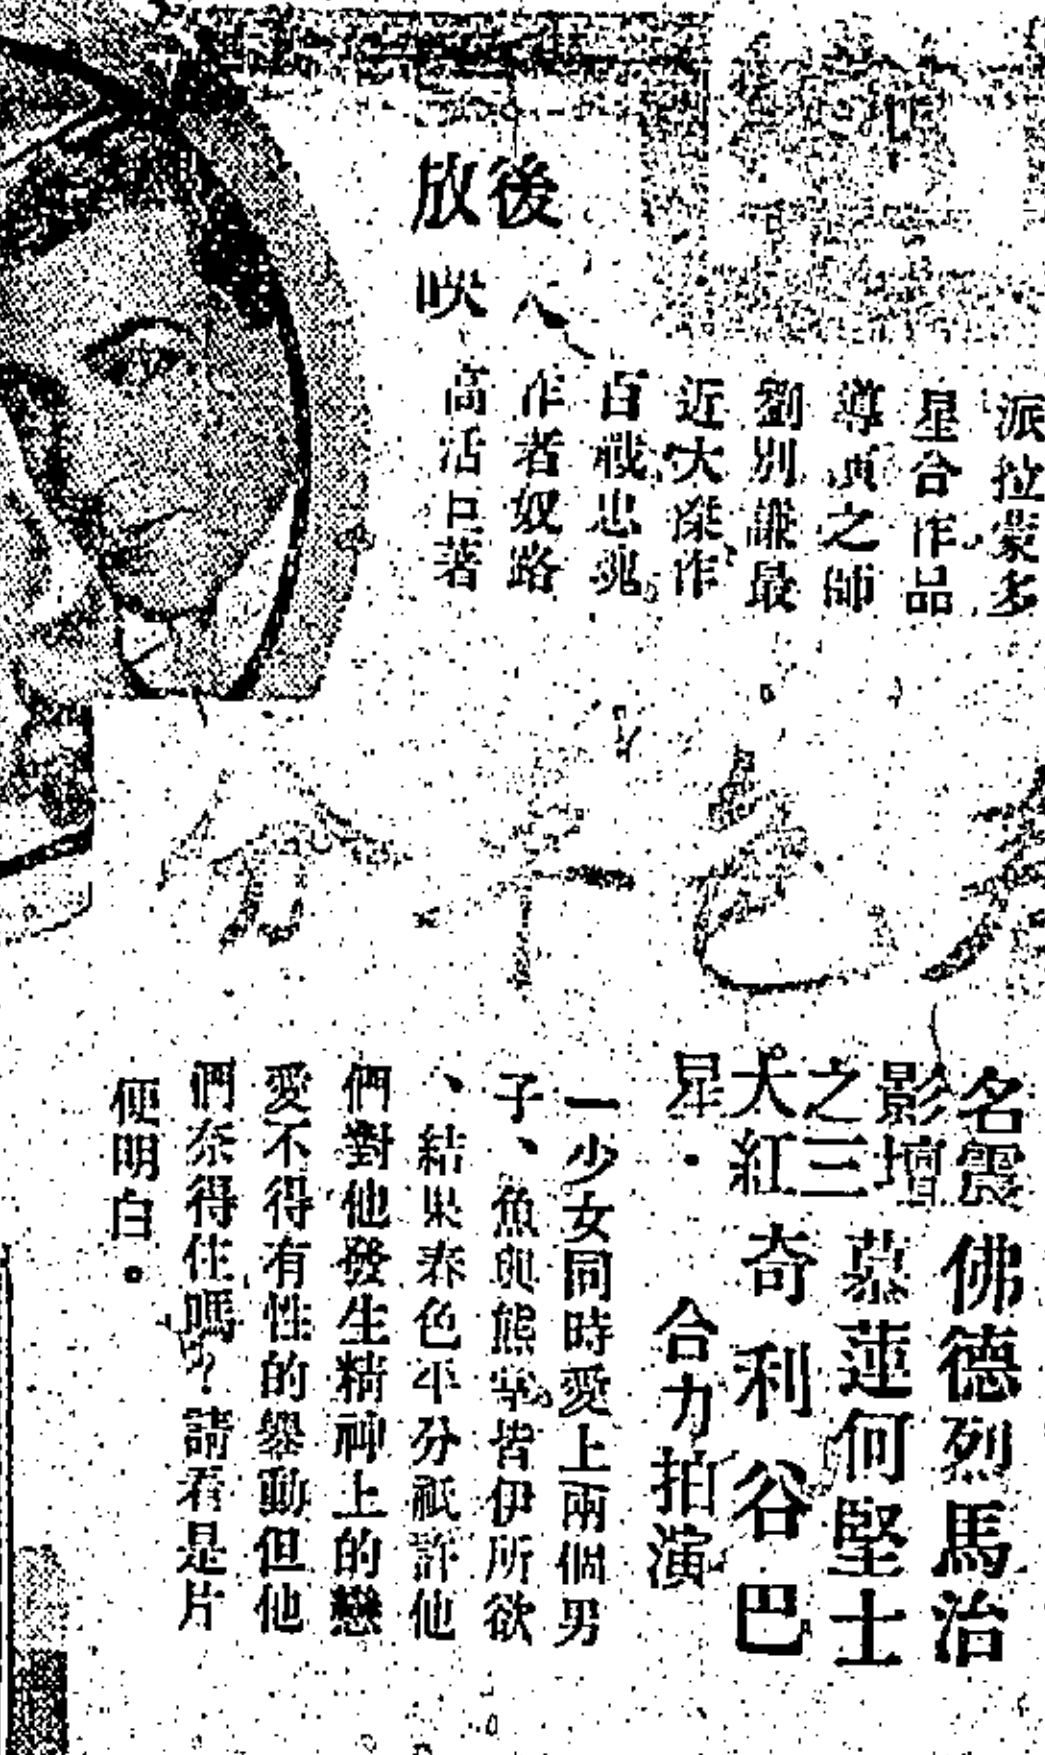 後
放映
派拉蒙多
星合作品
導演之師
劉別謙最
近大傑作
百戰忠魂
作者奴路
高活巨著
春色平分
名震
影壇
之三
大紅
星·
佛德烈馬治
慕蓮何堅士
奇利谷巴
合力拍演
一少女同時愛上兩個男
子、魚與熊掌皆伊所欲
、結果春色平分祇許他
們對他發生精神上的戀
愛不得有性的舉動但他
們奈得住嗎?請看是片
便明白。